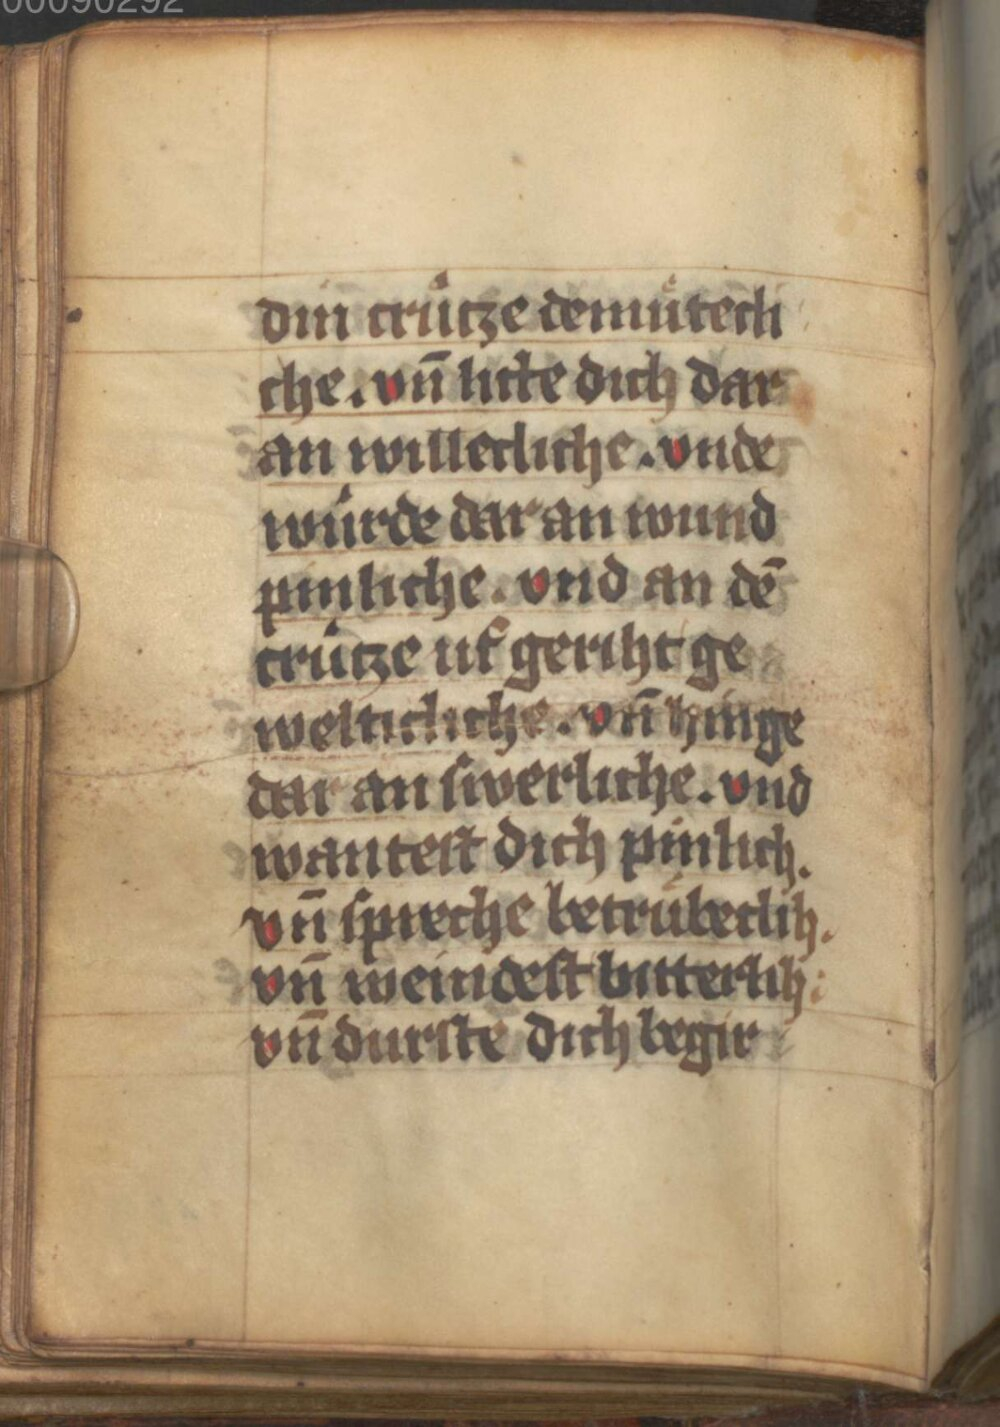 00090292
din crúcze demůtecli
che. vn̄ litte dich dar
an willecliche. vnde
wúrde dar an wund
pinliche. vnd an dē
crúcze uf geriht ge
welticliche. vn̄ hinge
dar an swerliche. vnd
wantest dich pinlich.
vn̄ spreche betrůbeclih.
vn̄ weindest bitterlih:
vn̄ durste dich begir